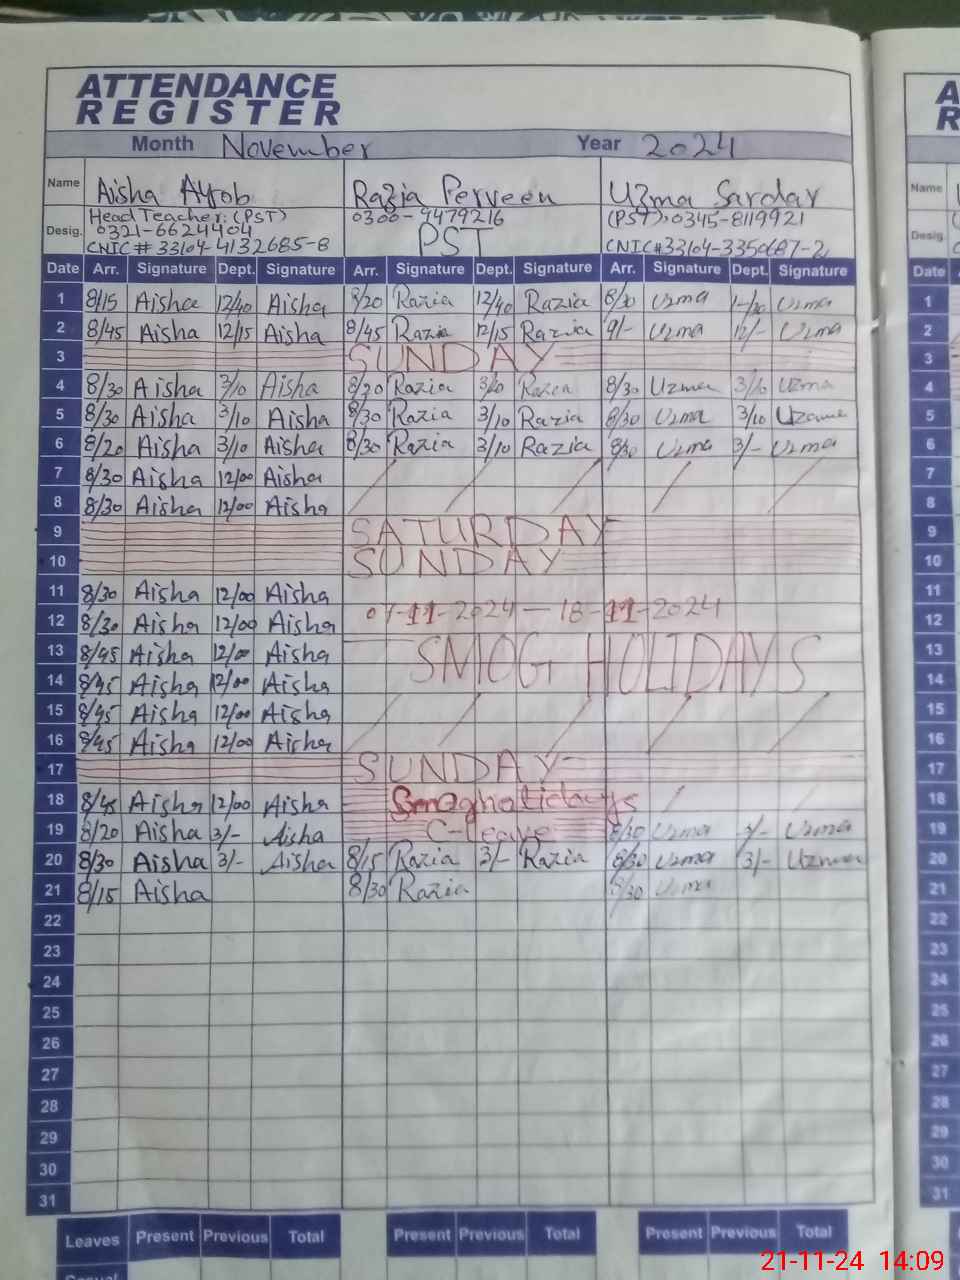 ATTENDANCE
REGISTER
Month November Year 2024
Name Aisha Ayob Razia Perveen Uzma Sardar
Desig. Head Teacher: (PST) 0300-9479216 (PST), 0345-8119921
0321-6624404 PST
CNIC # 33104-4132685-8 CNIC# 33104-3350687-2
Date Arr. Signature Dept. Signature Arr. Signature Dept. Signature Arr. Signature Dept. Signature
1 8/15 Aisha 12/40 Aisha 8/20 Razia 12/40 Razia Uzma Uzma
2 8/45 Aisha 12/15 Aisha 8/45 Razia 12/15 Razia 9/- Uzma 12/- Uzma
3 SUNDAY
4 8/30 Aisha 3/10 Aisha Razia Razia 8/30 Uzma 3/10 Uzma
5 8/30 Aisha 3/10 Aisha 8/30 Razia 3/10 Razia 8/30 Uzma 3/10 Uzma
6 8/20 Aisha 3/10 Aisha 8/30 Razia 3/10 Razia 8/30 Uzma 3/- Uzma
7 8/30 Aisha 12/00 Aisha
8 8/30 Aisha 12/00 Aisha
9 SATURDAY
10 SUNDAY
11 8/30 Aisha 12/00 Aisha
07-11-2024 — 18-11-2024
12 8/30 Aisha 12/00 Aisha
13 8/45 Aisha 12/00 Aisha SMOG HOLIDAYS
14 8/45 Aisha 12/00 Aisha
15 8/45 Aisha 12/00 Aisha
16 8/45 Aisha 12/00 Aisha
17 SUNDAY
18 8/45 Aisha 12/00 Aisha Smogholidays
19 8/20 Aisha 3/- Aisha C-leave 8/30 Uzma 3/- Uzma
20 8/30 Aisha 3/- Aisha 8/15 Razia 3/- Razia 8/30 Uzma 3/- Uzma
21 8/15 Aisha 8/30 Razia 8/30 Uzma
22
23
24
25
26
27
28
29
30
31
Leaves Present Previous Total Present Previous Total Present Previous Total
21-11-24 14:09
A
R
Name
Desig.
Date
1
2
3
4
5
6
7
8
9
10
11
12
13
14
15
16
17
18
19
20
21
22
23
24
25
26
27
28
29
30
31